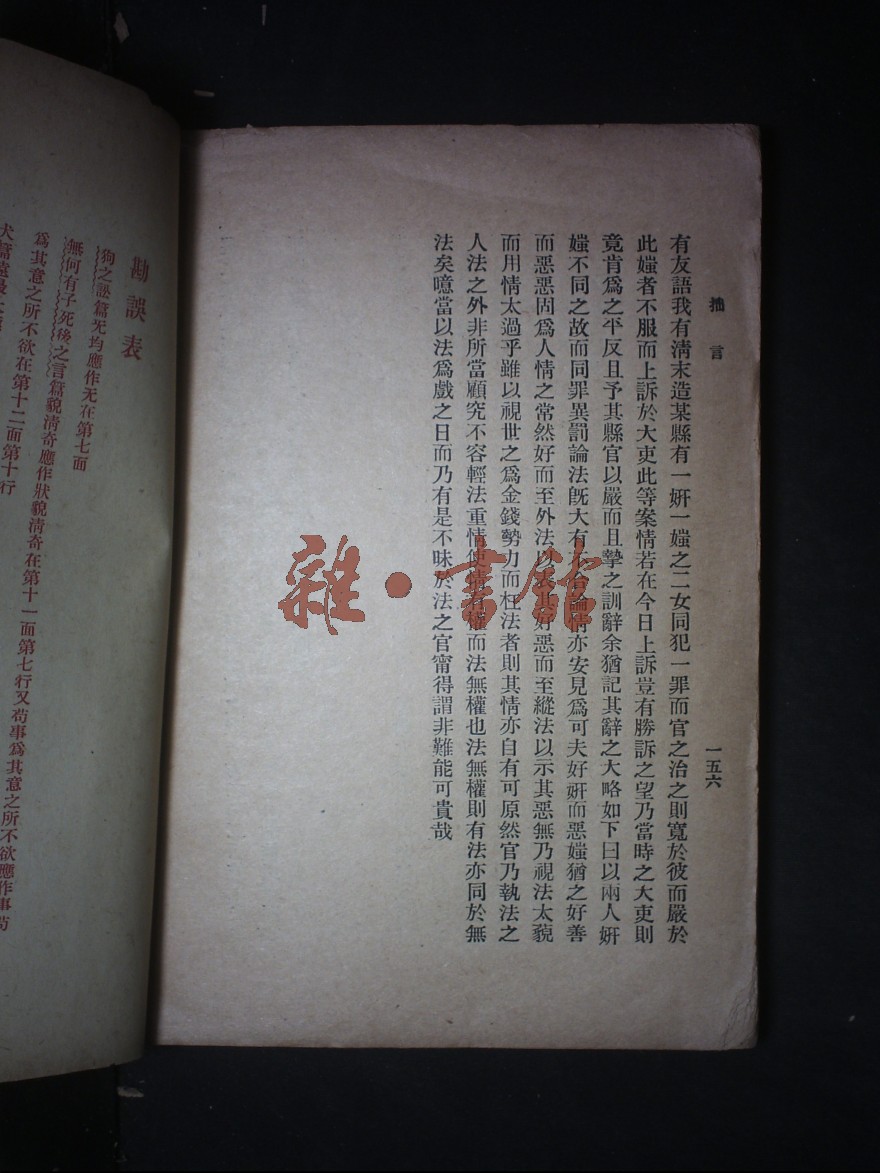 拙言
一五六
有友語我有淸末造某縣有一姸一媸之二女同犯一罪而官之治之則寬於彼而嚴於
此媸者不服而上訴於大吏此等案情若在今日上訴豈有勝訴之望乃當時之大吏則
竟肯爲之平反且予其縣官以嚴而且摯之訓辭余猶記其辭之大略如下曰以兩人姸
媸不同之故而同罪異罰論法旣大有論情亦安見爲可夫好姸而惡媸猶之好善
而惡惡固爲人情之常然好而至外法以表其好惡而至縱法以示其惡無乃視法太藐
而用情太過乎雖以視世之爲金錢勢力而枉法者則其情亦自有可原然官乃執法之
人法之外非所當顧究不容輕法重情使情有權而法無權也法無權則有法亦同於無
法矣噫當以法爲戲之日而乃有是不昧於法之官甯得謂非難能可貴哉
雜·書館
勘誤表
狗之訟篇旡均應作无在第七面
無何有子死後之言篇貌淸奇應作狀貌淸奇在第十一面第七行又苟事爲其意之所不欲應作事苟
爲其意之所不欲在第十二面第十行
犬篇